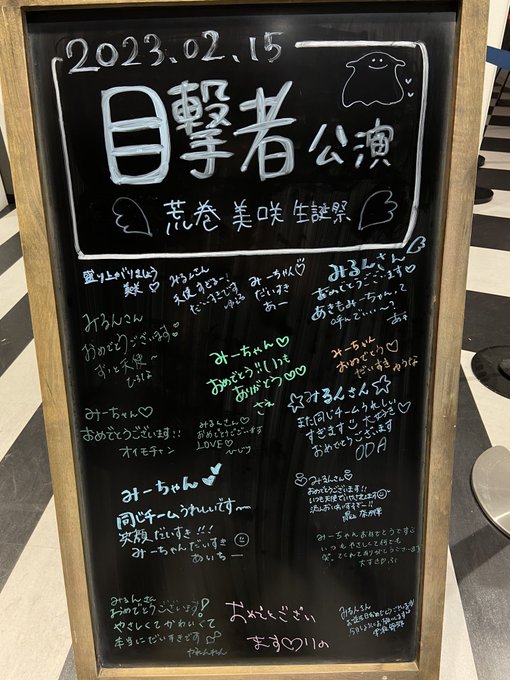 2023.02.15
目撃者 公演
荒巻 美咲 生誕祭
盛り上がりましょう
みるんさん
天使すぎるー!
だいすきです
みーちゃん♡
だいすき
あー
みるんさん
おめでとうございます♡
あきもみーちゃんって
呼んでいい…〜?
あき
みるんさん
おめでとうございます
ずっと天使〜
みーちゃん♡
おめでとう!!いつも
ありがとう♡♡
さえ
みーちゃん
おめでとう♡
だいすき
みーちゃん♡
おめでとうございます!!
オイモチャン
みるんさん♡
おめでとうございます
LOVE♡
☆みるんさん☆
また同じチームうれしい
すぎます 大好き♡
おめでとうございます
ODA
みーちゃん
同じチームうれしいです〜
笑顔だいすき!!!
みーちゃんだいすき
あいちー
みるんさん
おめでとうございます!!
みーちゃんおめでとうです
いつもやさしくて何でも
くれてありがとうございます
大すき
みるんさん
おめでとうございます!
やさしくてかわいくて
本当にだいすきです
おめでとうござい
ます♡りの
みるんさん
お誕生日おめでとうございます